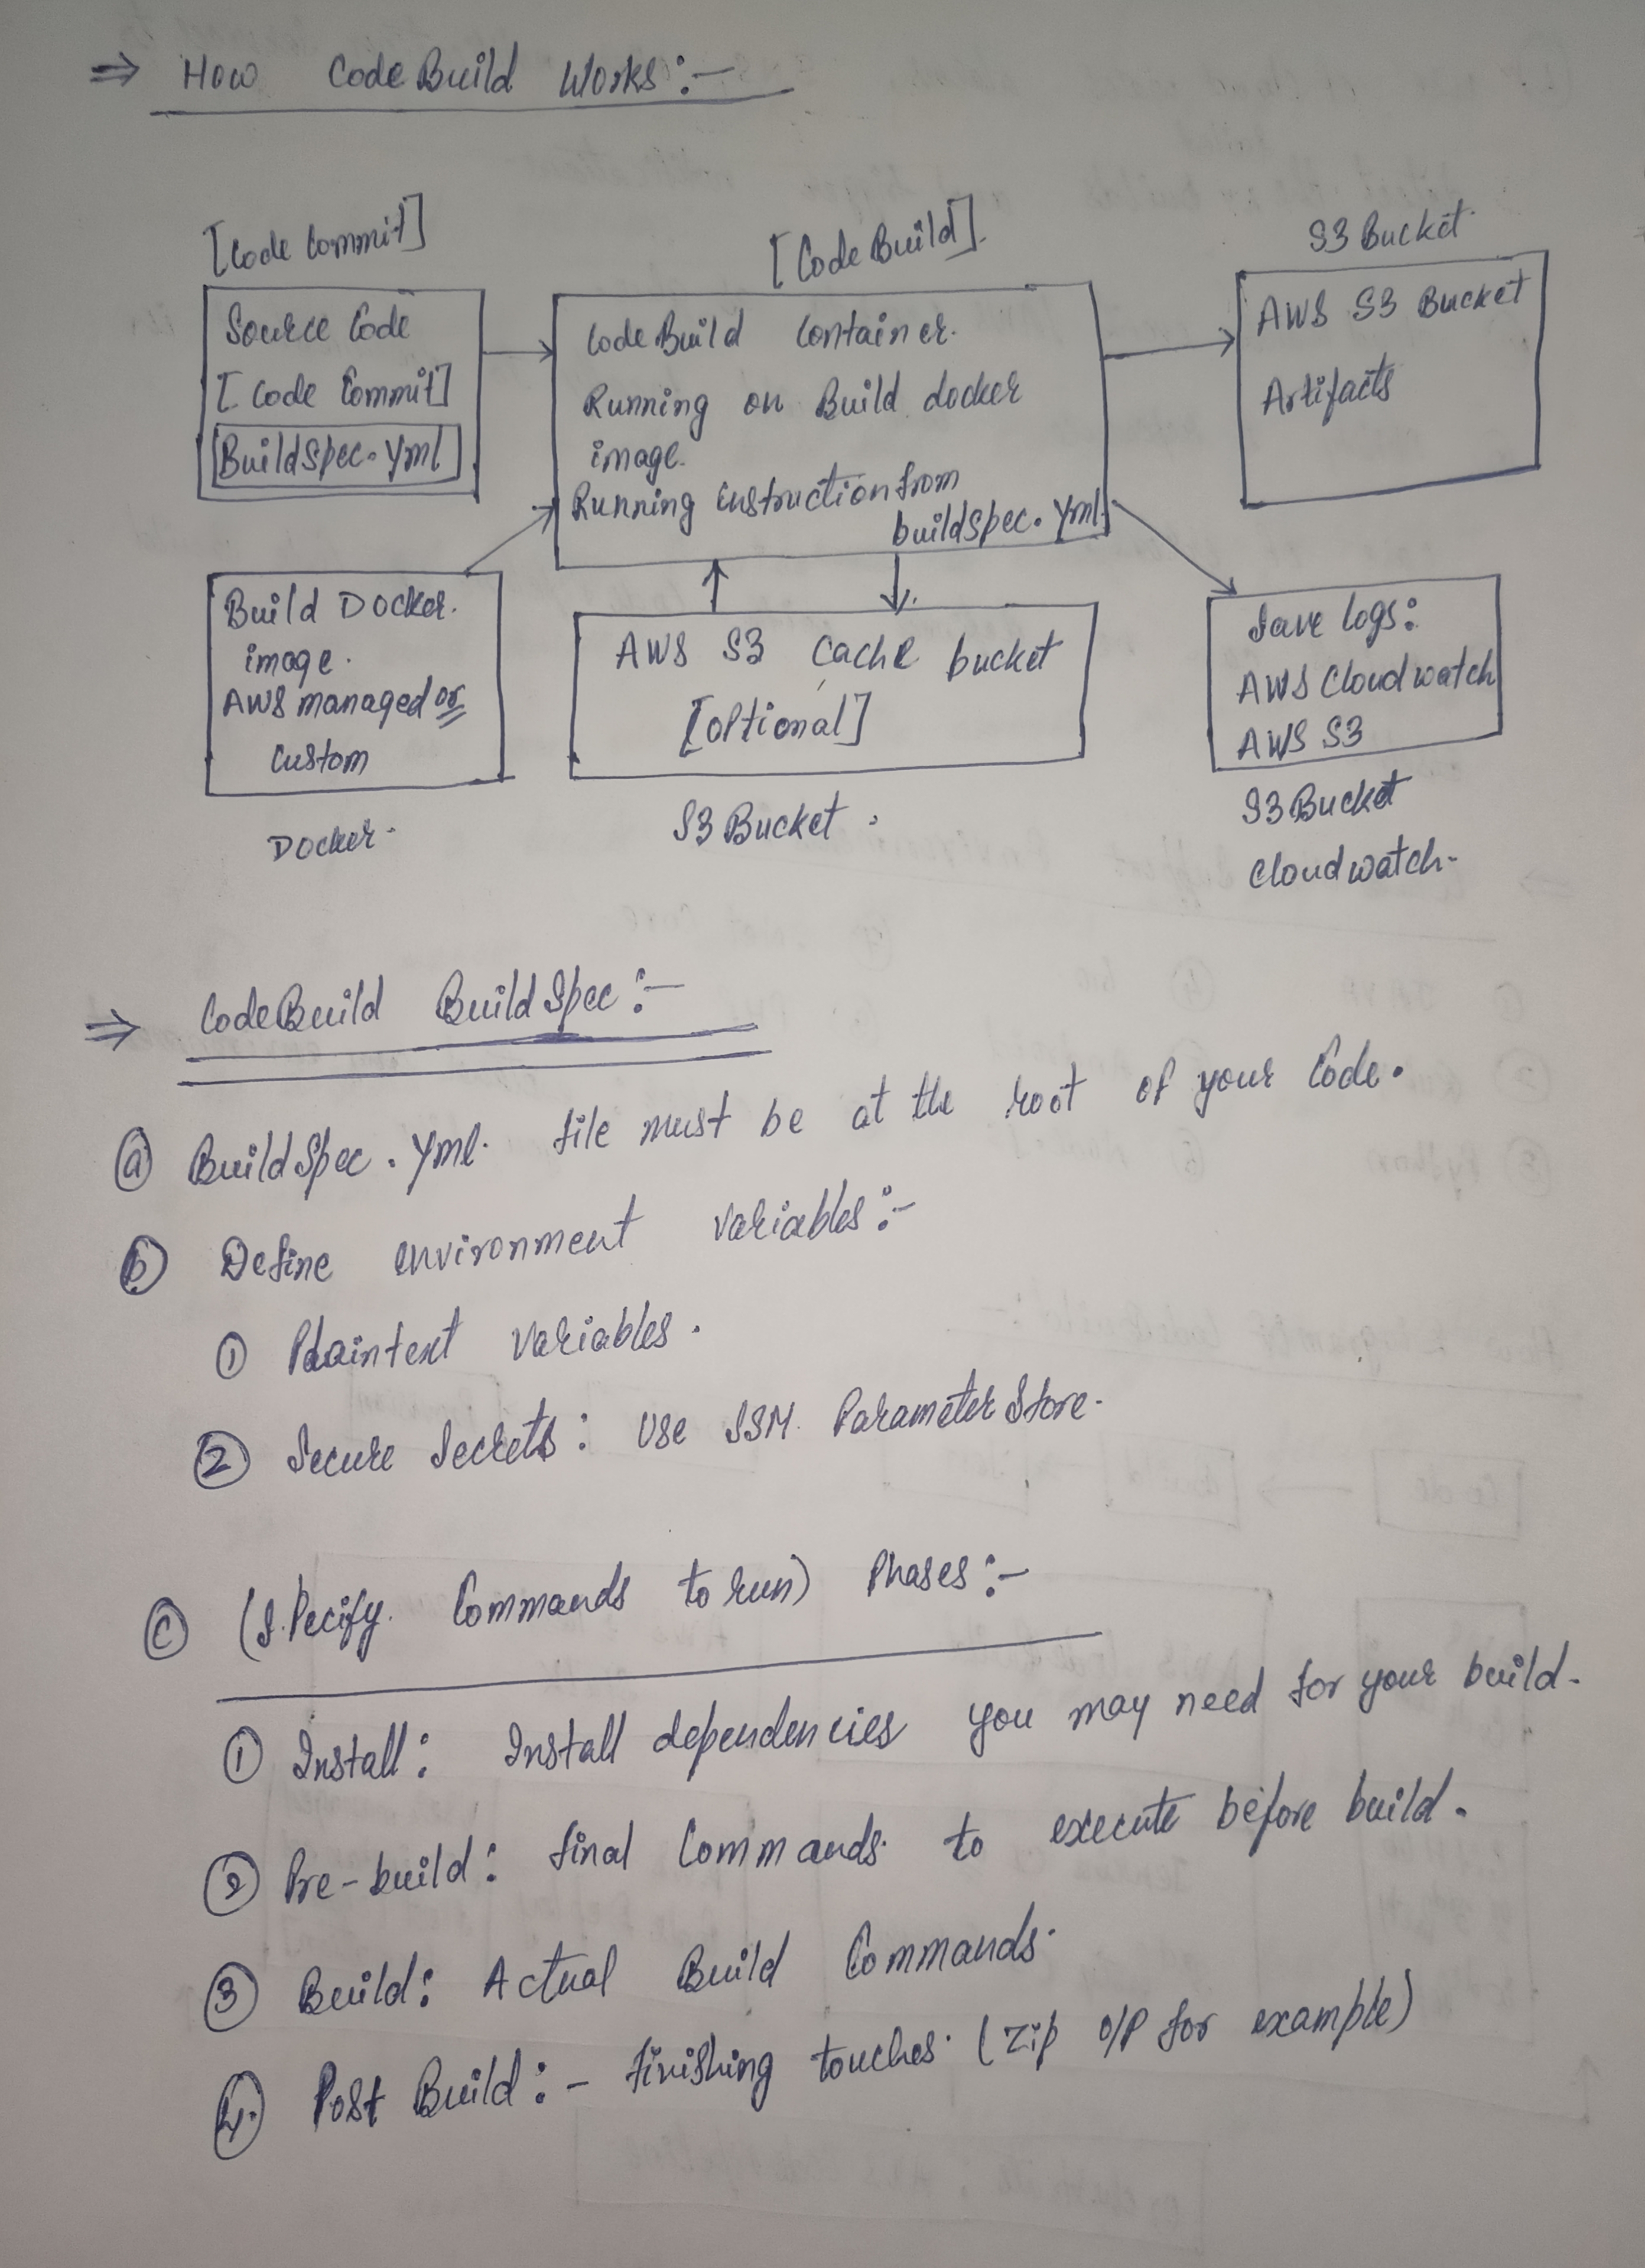 ⇒ How CodeBuild Works:-
[Code Commit]
Source Code
[Code Commit]
BuildSpec.yml
[CodeBuild].
CodeBuild Container.
Running on Build docker
image.
Running instruction from
buildspec.yml.
S3 Bucket
AWS S3 Bucket
Artifacts
Build Docker.
image.
AWS managed or
Custom
Docker.
AWS S3 Cache bucket
[optional]
S3 Bucket.
Save logs:
AWS Cloudwatch
AWS S3
S3 Bucket
Cloudwatch-
⇒ CodeBuild BuildSpec:-
ⓐ BuildSpec.yml. file must be at the root of your Code.
ⓑ Define environment variables:-
① Plaintext variables.
② Secure Secrets: Use SSM. Parameter Store-
ⓒ (Specify. Commands to run) Phases:-
① Install: Install dependencies you may need for your build-
② Pre-build: final Commands. to execute before build.
③ Build: Actual Build Commands.
④ Post Build:- finishing touches. (zip o/p for example)